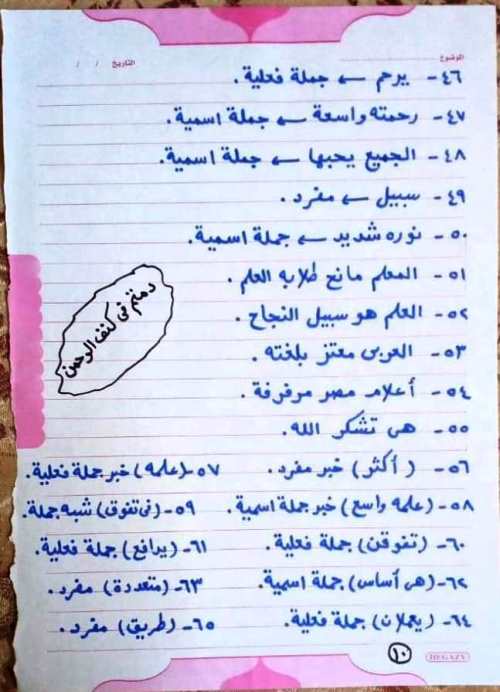 الموضوع التاريخ / /
٤٦- يرحم ← جملة فعلية.
٤٧- رحمته واسعة ← جملة اسمية.
٤٨- الجميع يحبها ← جملة اسمية.
٤٩- سبيل ← مفرد.
٥٠- نوره شديد ← جملة اسمية.
٥١- المعلم مانح طلابه العلم.
٥٢- العلم هو سبيل النجاح.
٥٣- العربى معتز بلغته.
٥٤- أعلام مصر مرفرفة.
٥٥- هى تشكر الله.
دمتم فى كنف الرحمن
٥٦- (أكثر) خبر مفرد. ٥٧- (علمه) خبر جملة فعلية.
٥٨- (علمه واسع) خبر جملة اسمية. ٥٩- (فى تفوق) شبه جملة.
٦٠- (تفوقن) جملة فعلية. ٦١- (يدافع) جملة فعلية.
٦٢- (هى أساس) جملة اسمية. ٦٣- (متعددة) مفرد.
٦٤- (يعملان) جملة فعلية. ٦٥- (طريق) مفرد.
١٠
HEGAZY